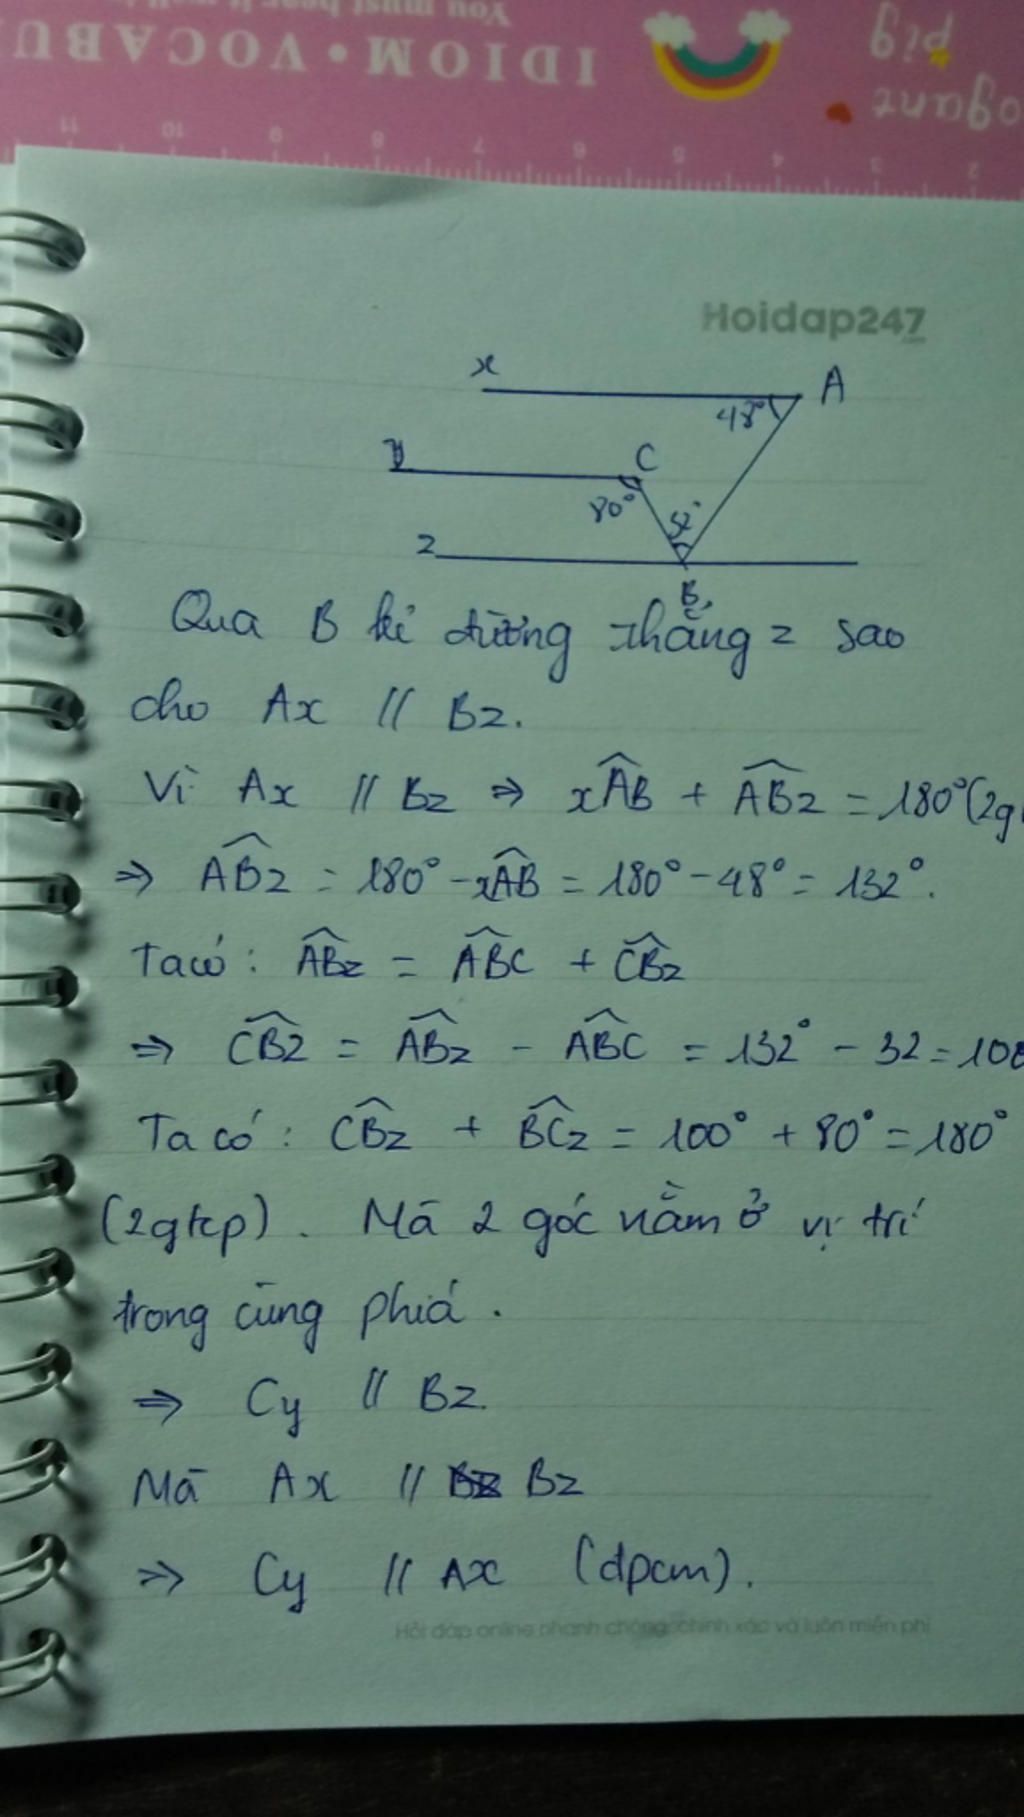 You must hear it
IDIOM • VOCABU
pig
11 10 9 8 7 6 5 4 3 2
Hoidap247
x A
48°
y C
80° 32°
z
B
Qua B kẻ đường thẳng z sao
cho Ax // Bz.
Vì Ax // Bz ⇒ xAB + ABz = 180° (2g
⇒ ABz = 180° - xAB = 180° - 48° = 132°.
Ta có: ABz = ABC + CBz
⇒ CBz = ABz - ABC = 132° - 32 = 100
Ta có: CBz + BCz = 100° + 80° = 180°
(2gtcp). Mà 2 góc nằm ở vị trí
trong cùng phía.
⇒ Cy // Bz.
Mà Ax // Bz
⇒ Cy // Ax (dpcm).
Hỏi đáp online nhanh chóng, chính xác và luôn miễn phí